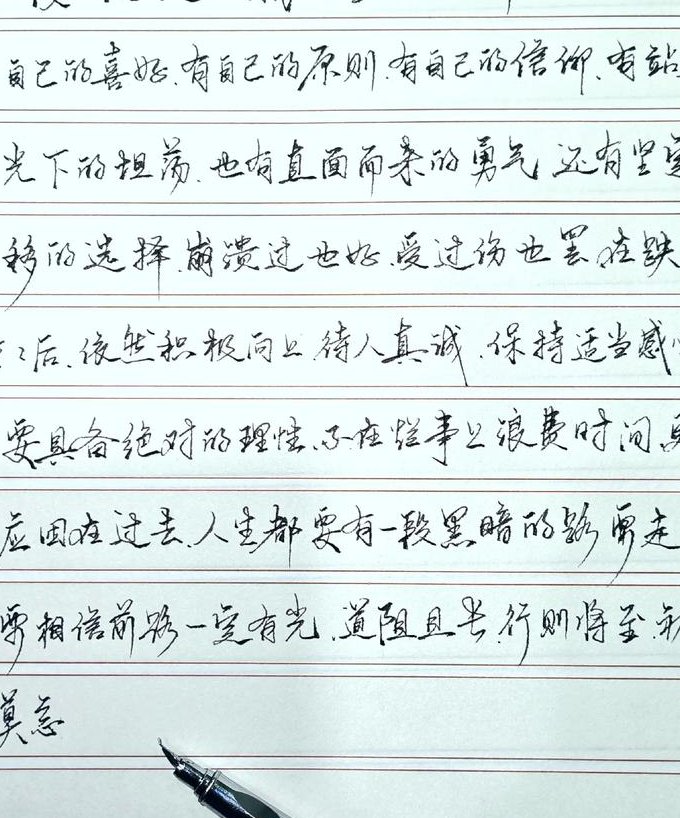 自己的喜好、有自己的原则、有自己的信仰、有站
光下的坦荡、也有直面而来的勇气 还有坚定
移的选择、崩溃过也好、受过伤也罢、在跌
后、依然积极向上 待人真诚、保持适当感
要具备绝对的理性、不在烂事上浪费时间、
应困在过去、人生都要有一段黑暗的路要走
要相信前路一定有光、道阻且长、行则将至、
莫急